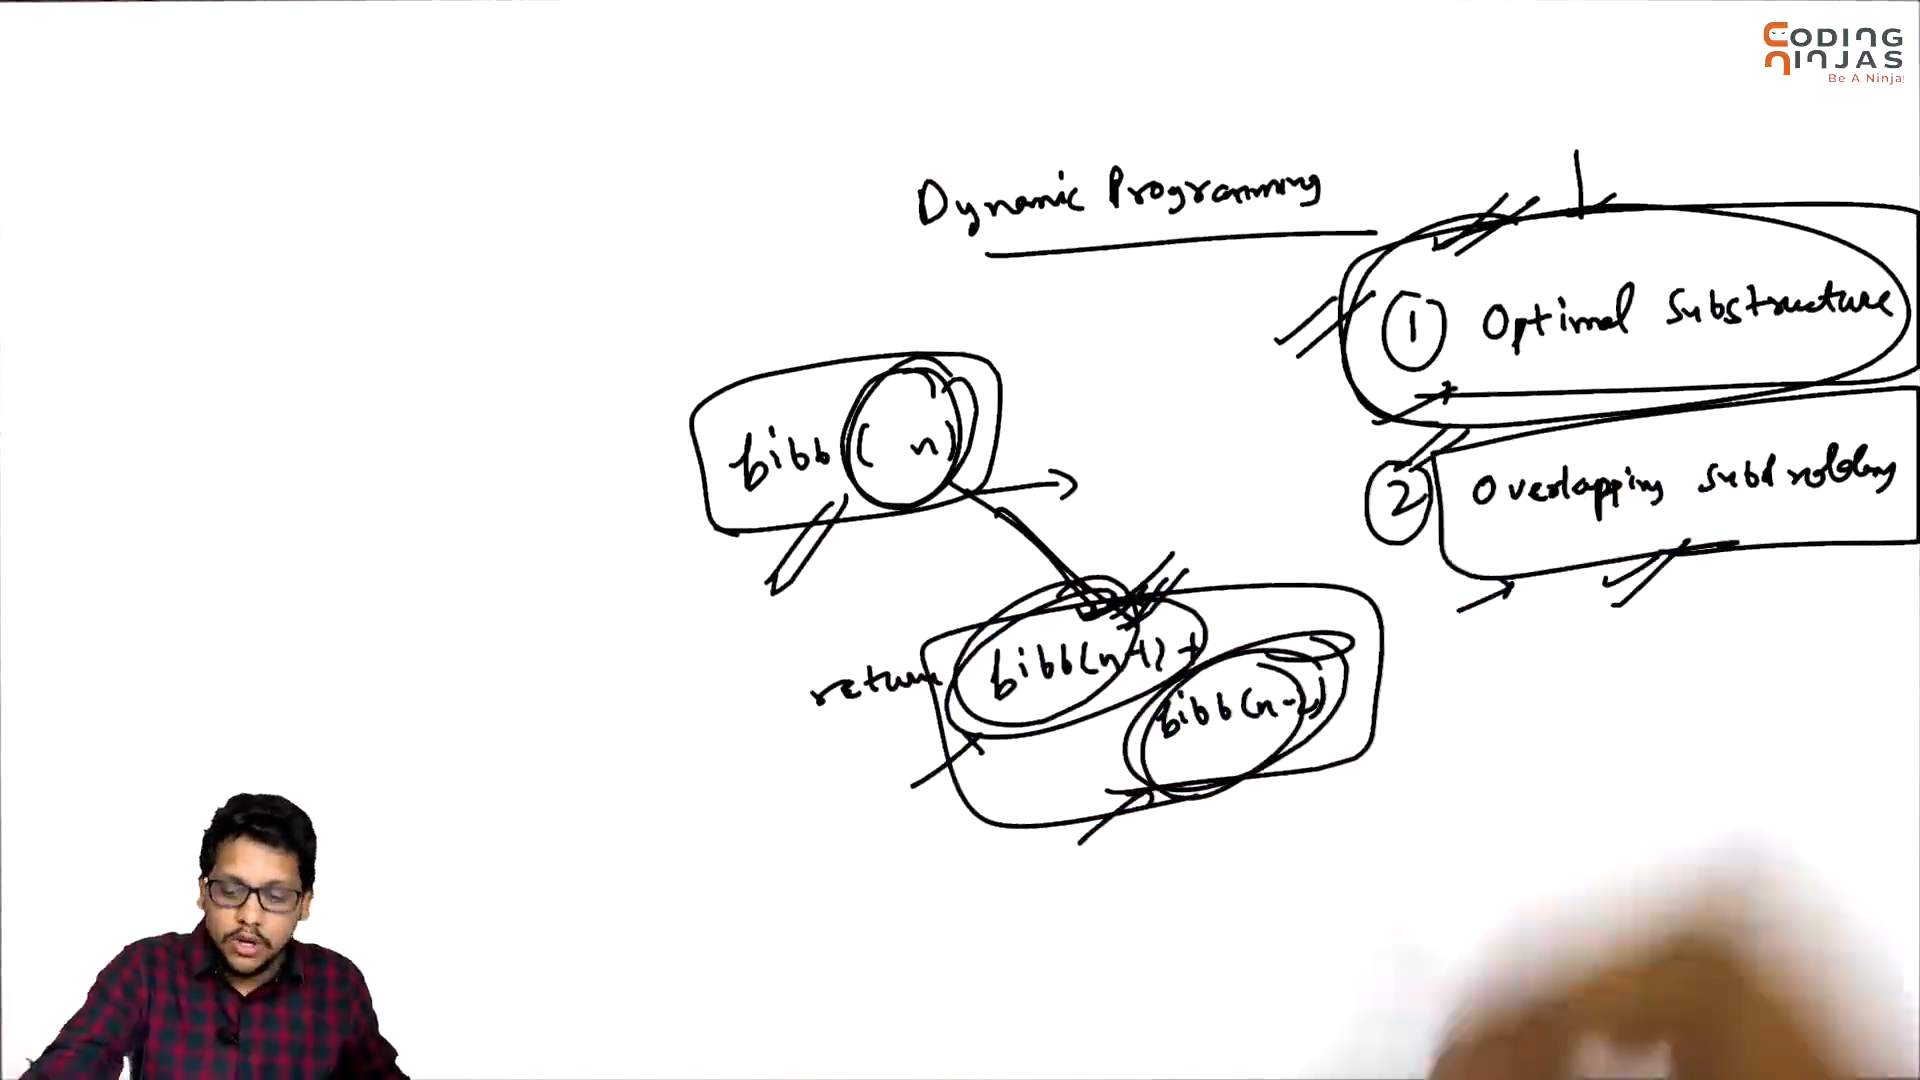 CODING
NINJAS
Be A Ninja
Dynamic Programming
1 Optimal Substructure
2 Overlapping subproblems
fibb(n)
return fibb(n-1) +
fibb(n-2)